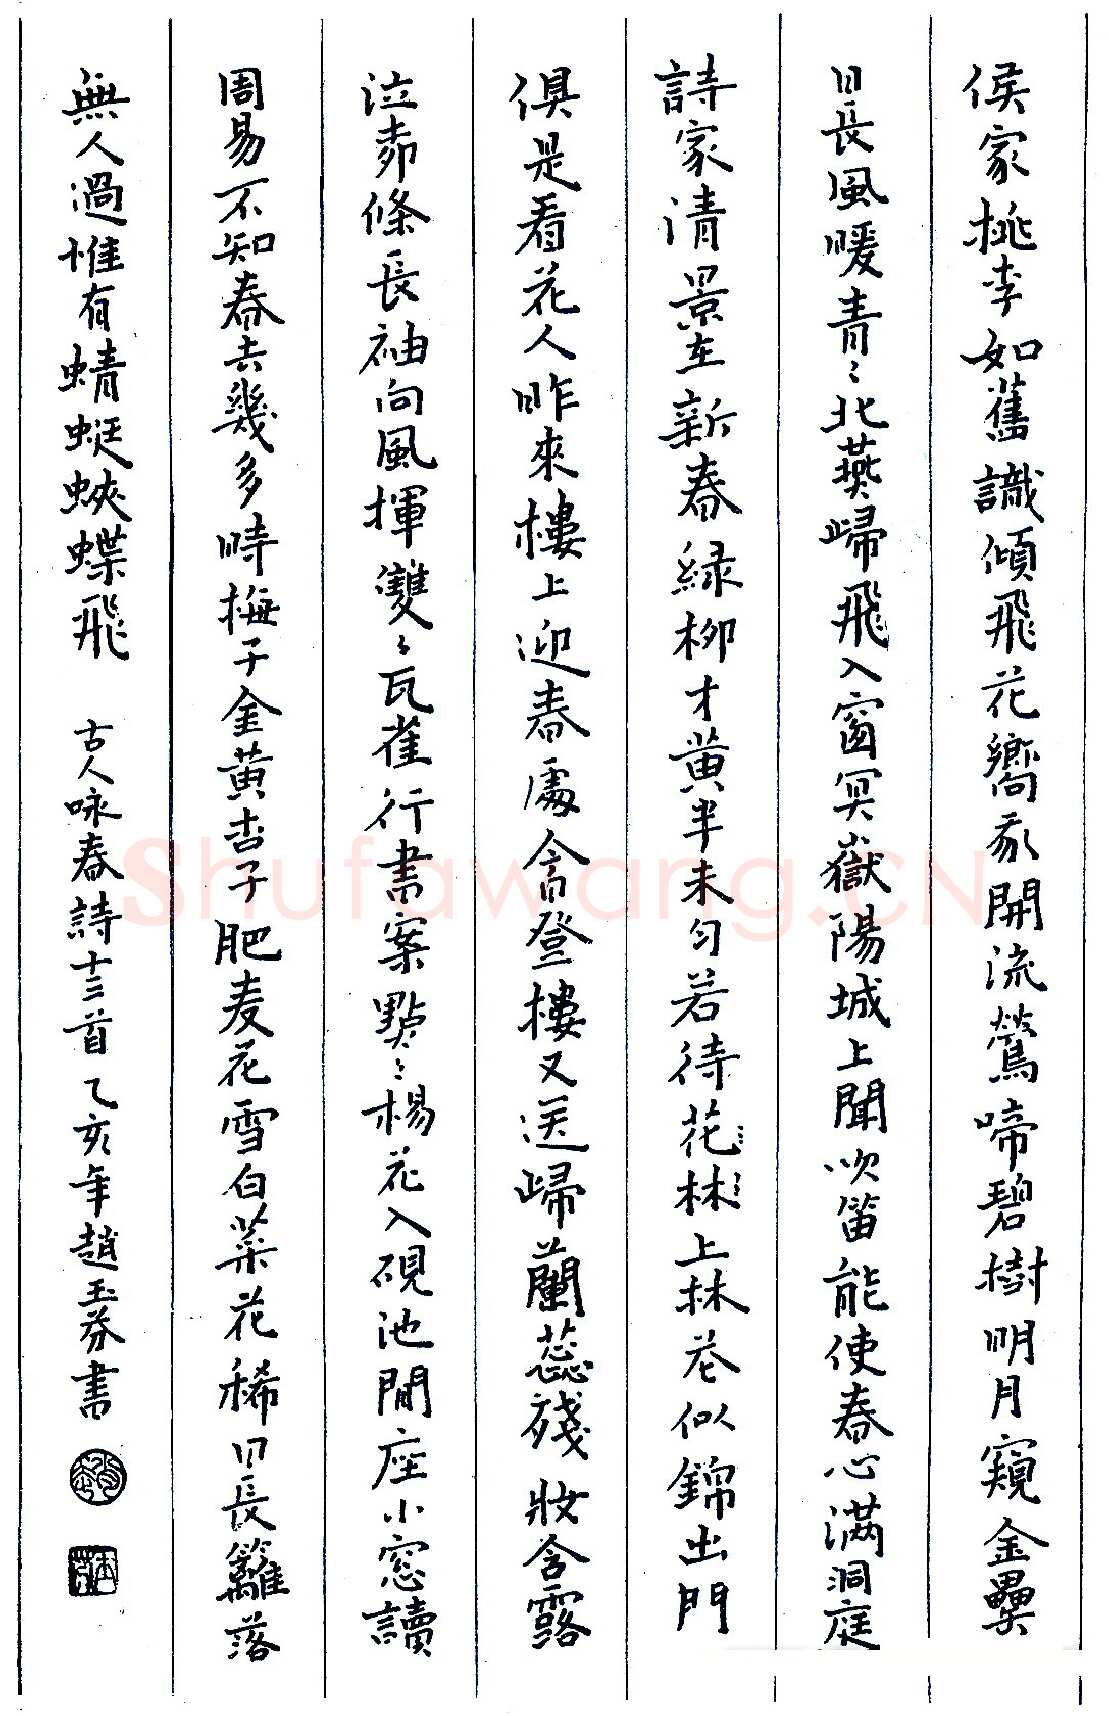 侯家桃李如舊識傾飛花嚮我開流鶯啼碧樹明月窺金罍
日長風暖青〻北燕歸飛入窗冥嶽陽城上聞吹笛能使春心滿洞庭
詩家清景在新春緑柳才黄半未匀若待花林上林苍似錦出門
俱是看花人昨來樓上迎春處今登樓又送歸蘭蕊殘妝含露
泣茆條長袖向風揮雙〻瓦雀行書案點〻楊花入硯池閒座小窓讀
周易不知春去幾多時梅子金黄杏子肥麦花雪白菜花稀日長籬落
無人過惟有蜻蜓蛺蝶飛
古人咏春詩十三首乙亥年趙玉芬書
Shufawang.CN